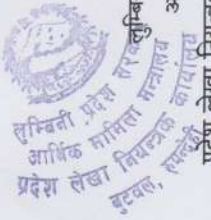 लुम्बिनी प्रदेश सरकार
आर्थिक मामिला मन्त्रालय
प्रदेश लेखा नियन्त्रक कार्यालय
बुटवल, रुपन्देही
लुम्बि
प्रदेश लेखा नियन्त्र